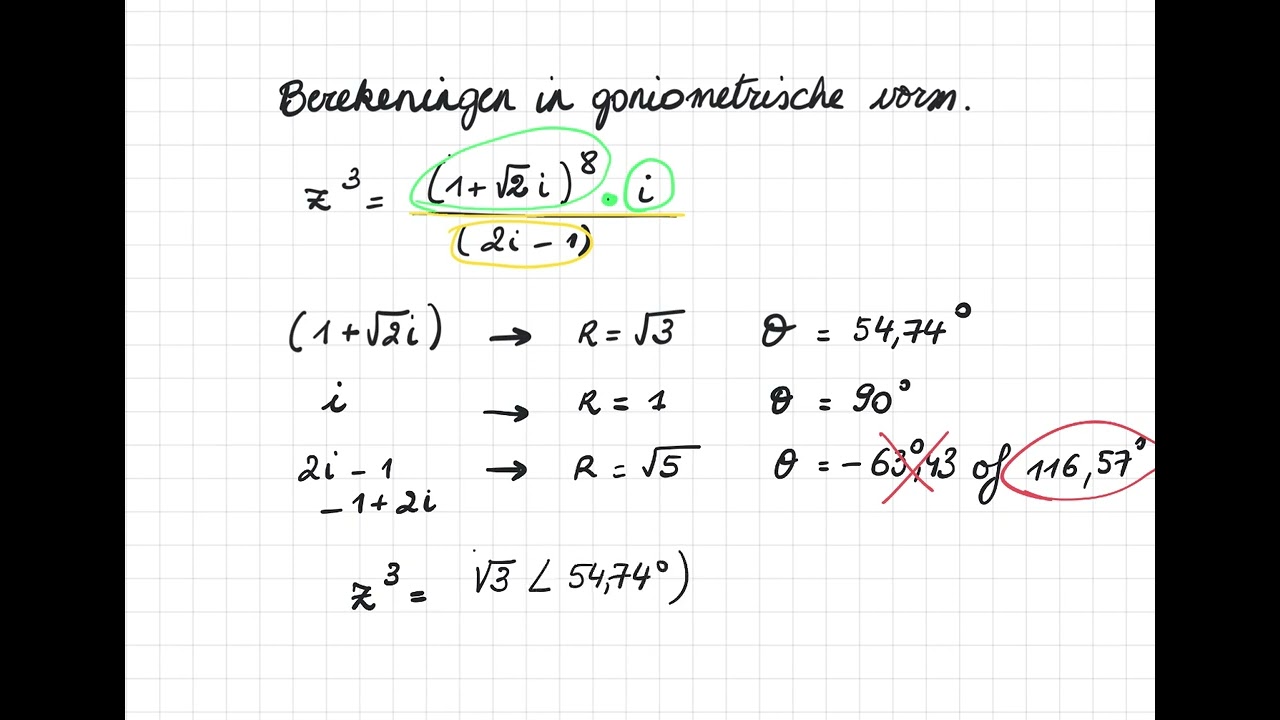 Berekeningen in goniometrische vorm.
z³ = (1+√2 i)⁸ . i
(2i – 1)
(1+√2i) → R = √3 θ = 54,74°
i → R = 1 θ = 90°
2i – 1 → R = √5 θ = –63°,43 of 116,57°
– 1+2i
z³ = √3 ∠ 54,74°)